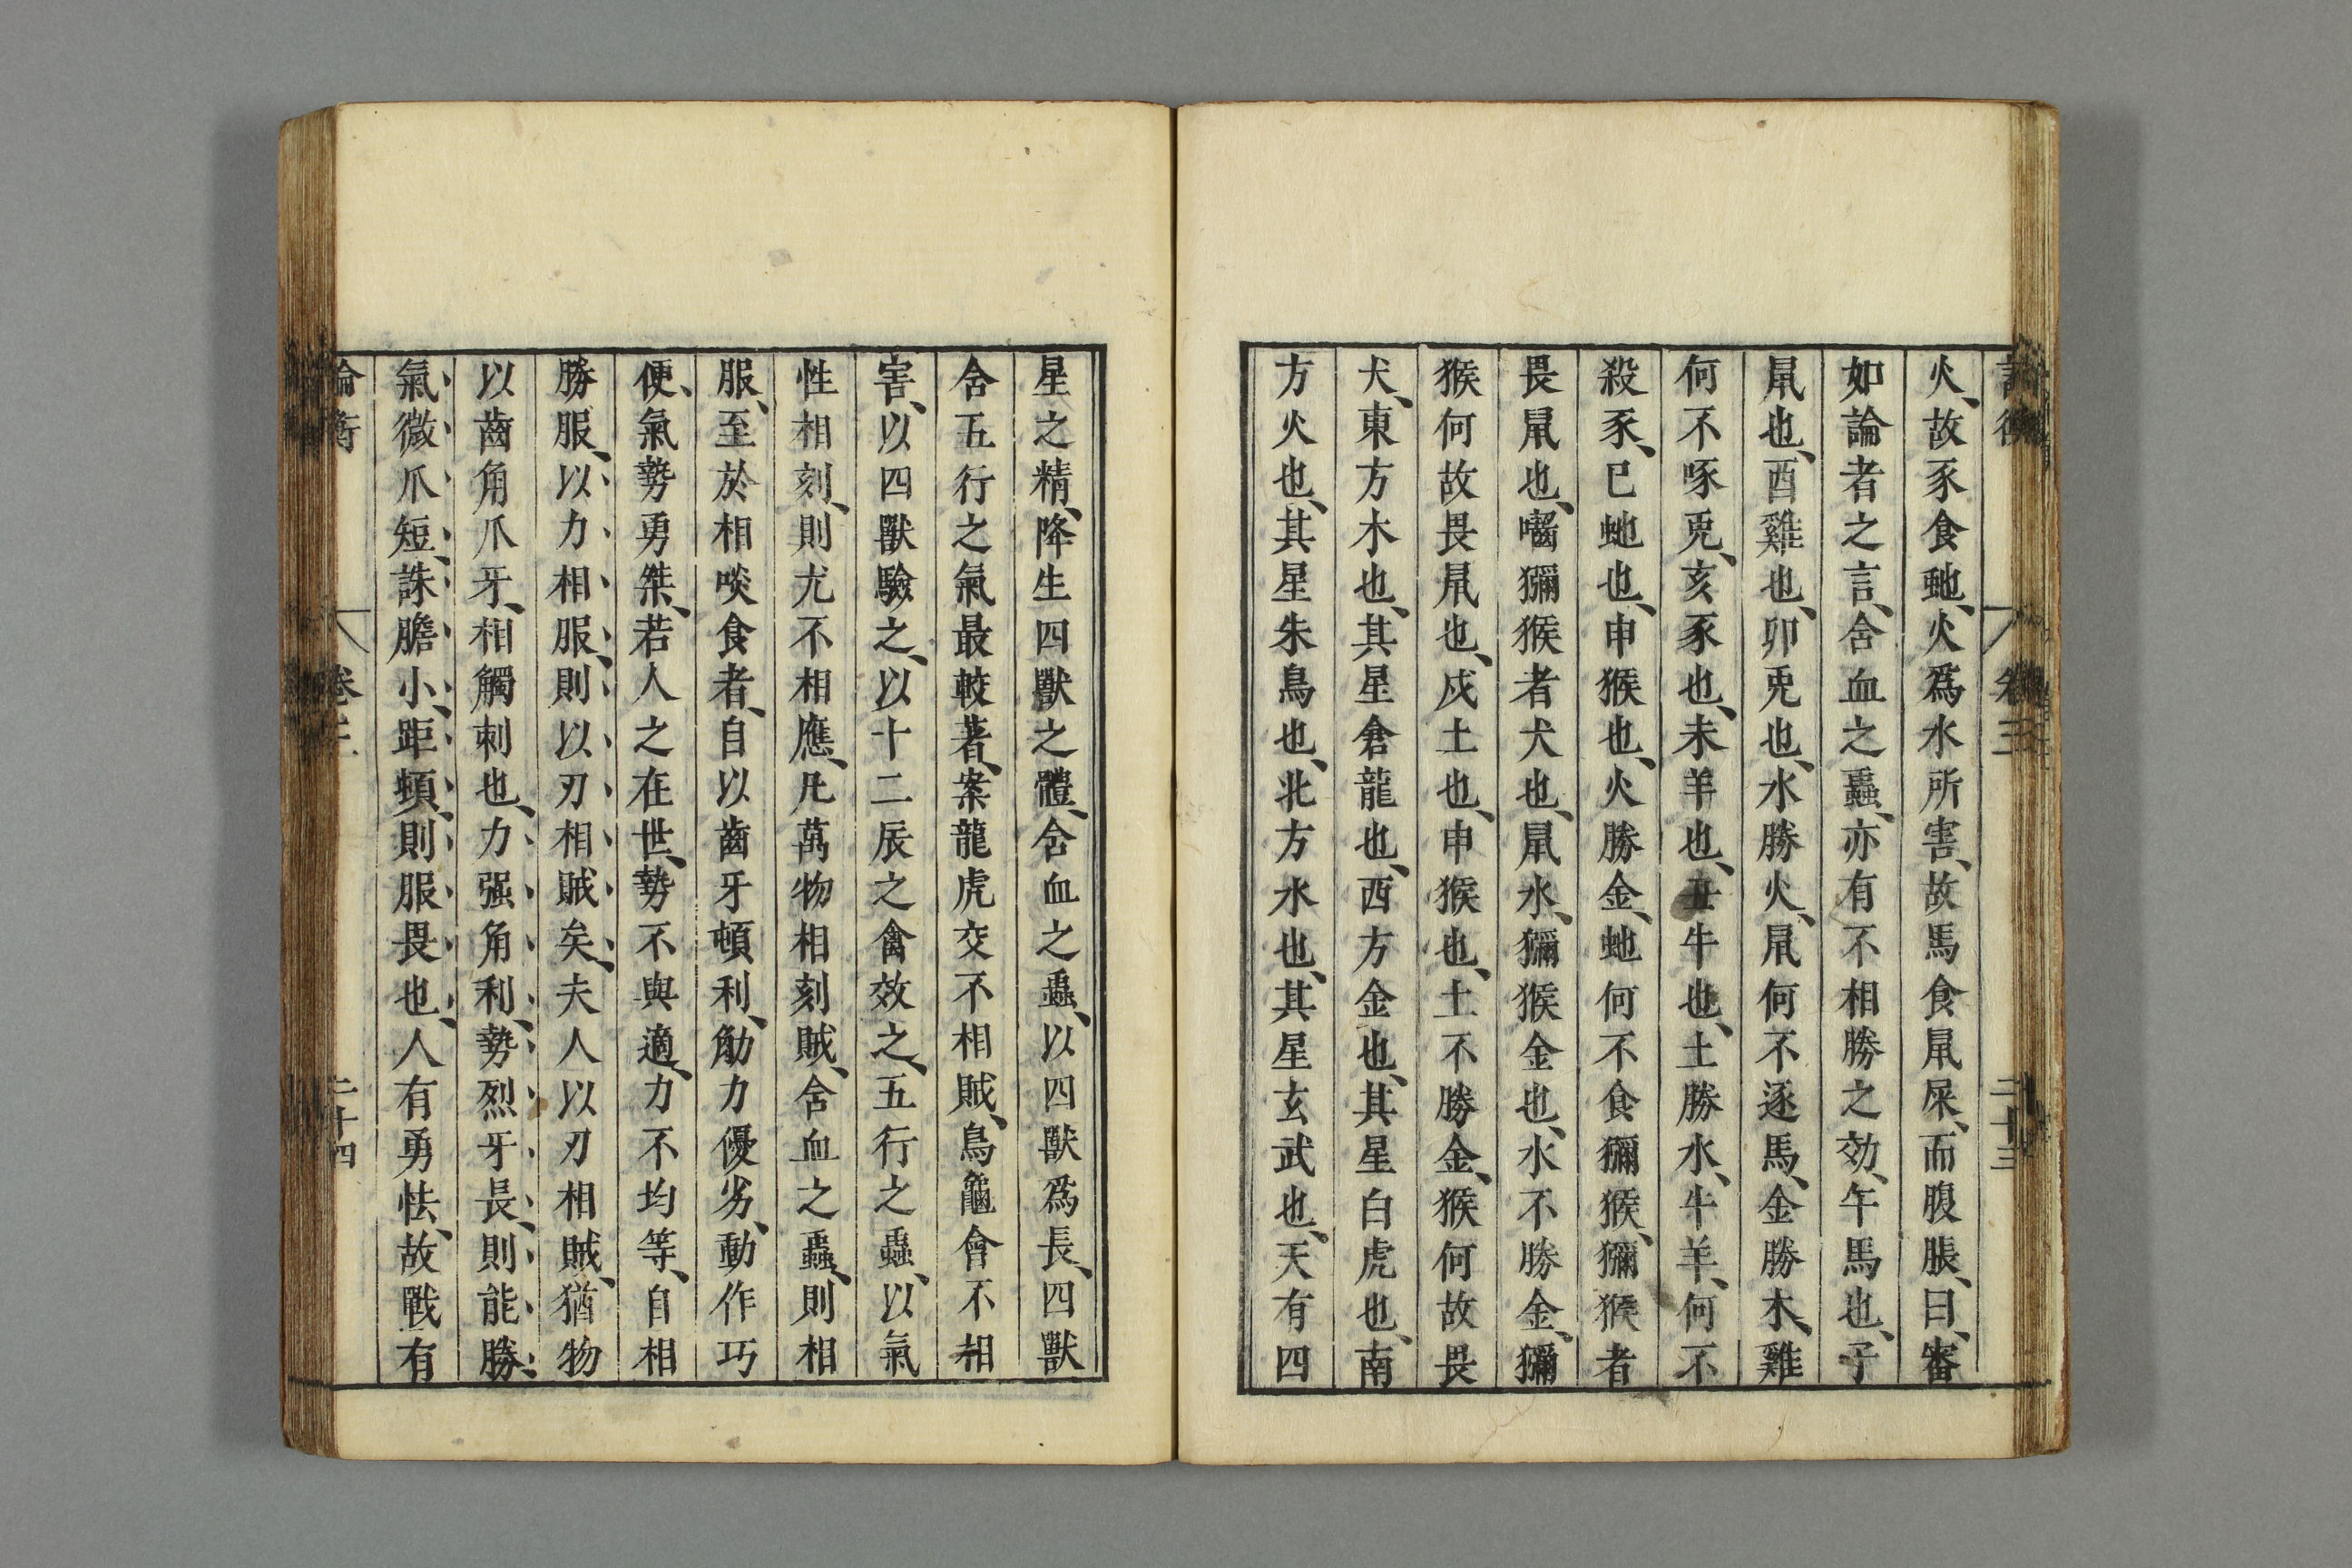 論衡 卷三 二十三
火、故豕食虵、火爲水所害、故馬食鼠屎、而腹脹、曰、審
如論者之言、含血之蟲、亦有不相勝之効、午馬也、子
鼠也、酉雞也、卯兎也、水勝火、鼠何不逐馬、金勝木、雞
何不啄兎、亥豕也、未羊也、丑牛也、土勝水、牛羊、何不
殺豕、巳虵也、申猴也、火勝金、虵何不食獼猴、獼猴者
畏鼠也、囓獼猴者犬也、鼠水、獼猴金也、水不勝金、獼
猴何故畏鼠也、戌土也、申猴也、土不勝金、猴何故畏
犬、東方木也、其星倉龍也、西方金也、其星白虎也、南
方火也、其星朱鳥也、北方水也、其星玄武也、天有四
星之精、降生四獸之體、含血之蟲、以四獸爲長、四獸
含五行之氣最較著、案龍虎交不相賊、鳥龜會不相
害、以四獸驗之、以十二辰之禽效之、五行之蟲、以氣
性相刻、則尤不相應、凡萬物相刻賊、含血之蟲、則相
服、至於相啖食者、自以齒牙頓利、觔力優劣、動作巧
便、氣勢勇桀、若人之在世、勢不與適、力不均等、自相
勝服、以力相服、則以刃相賊矣、夫人以刃相賊、猶物
以齒角爪牙、相觸刺也、力强角利、勢烈牙長、則能勝、
氣微爪短、誅膽小、距頓、則服畏也、人有勇怯、故戰有
論衡 卷三 二十四